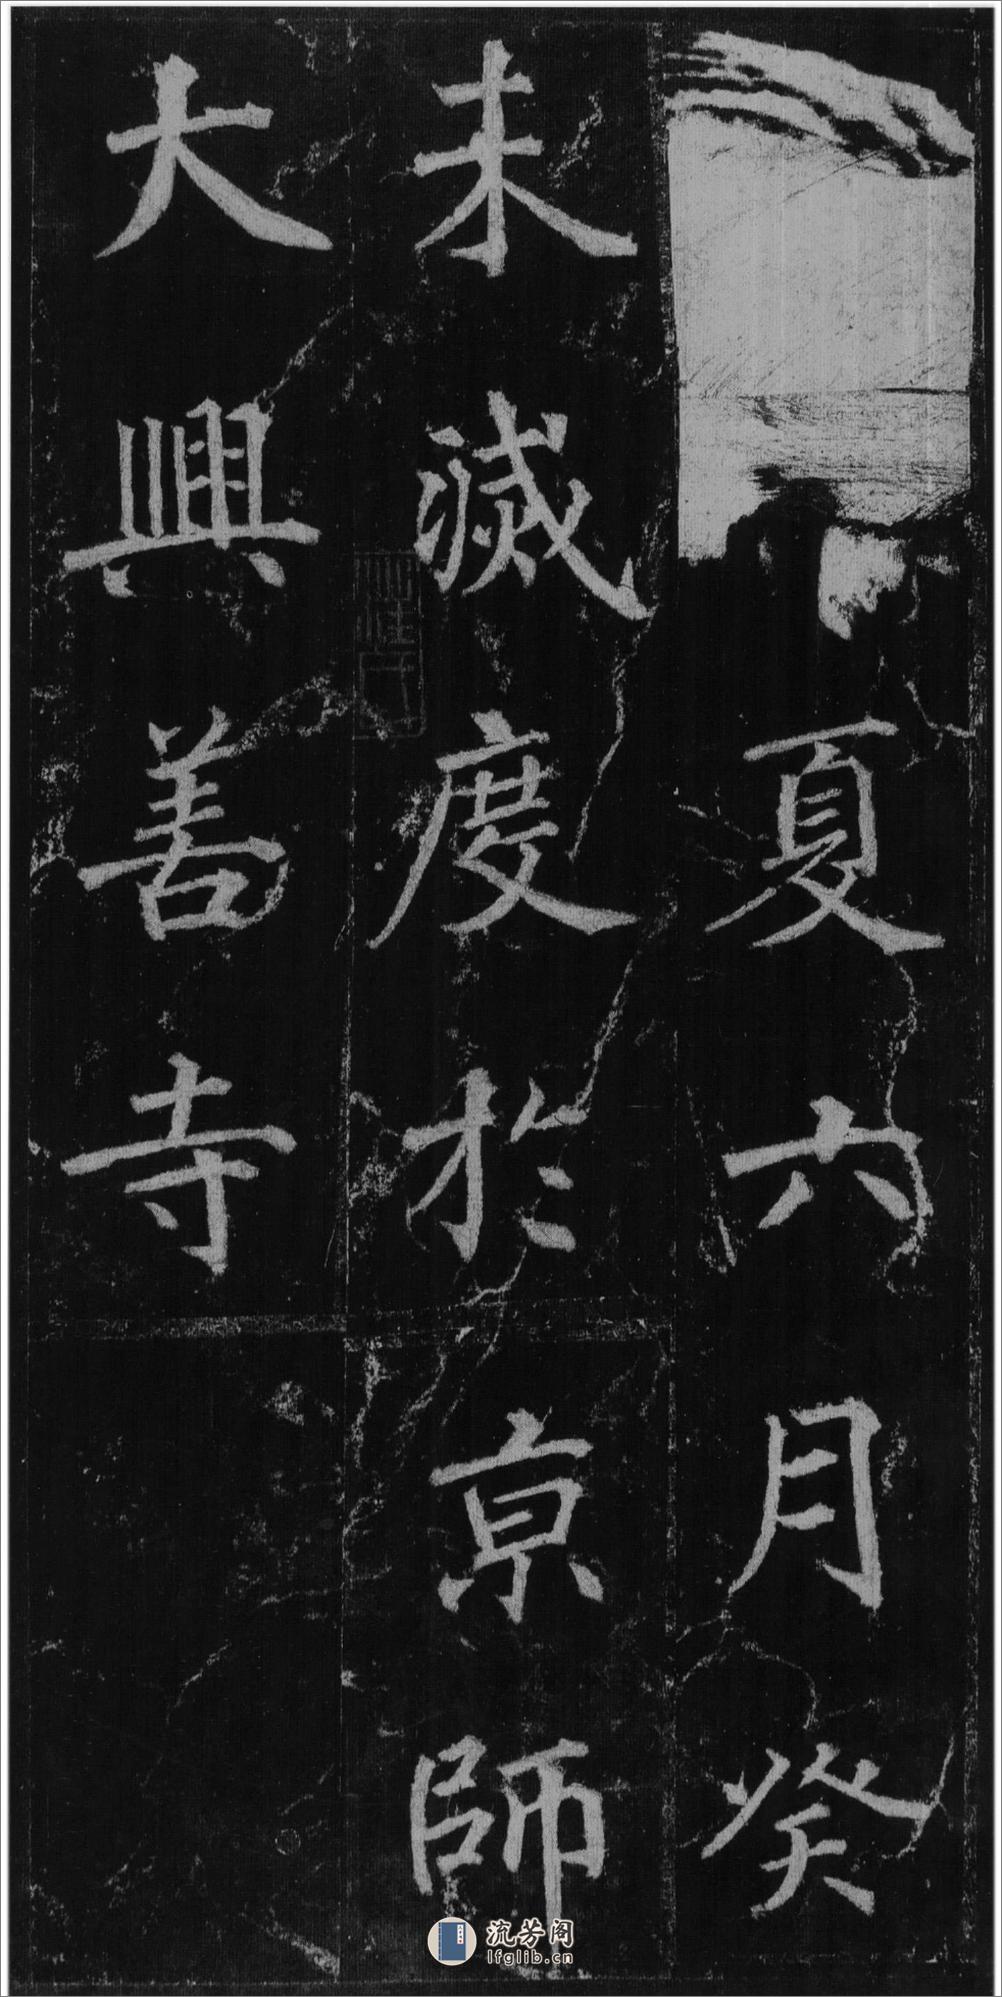 夏六月癸
未滅度於京師
大興善寺
流芳阁
lfglib.cn